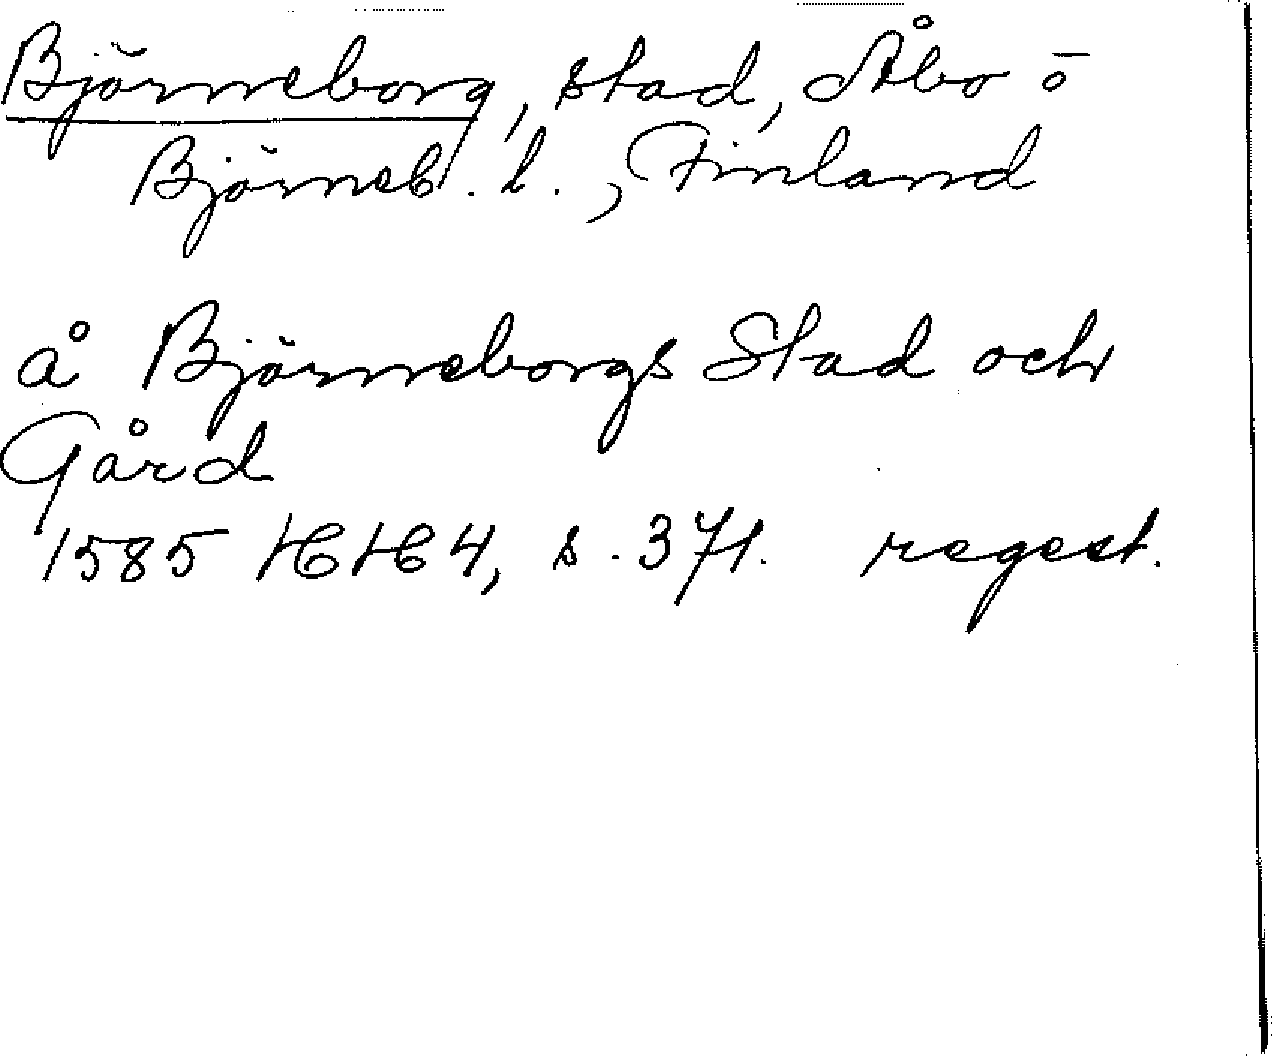 Björneborg, stad, Åbo o
Björneb. l., Finland
å Björneborgs Stad och
Gård
1585 HH 4, s. 371. regest.